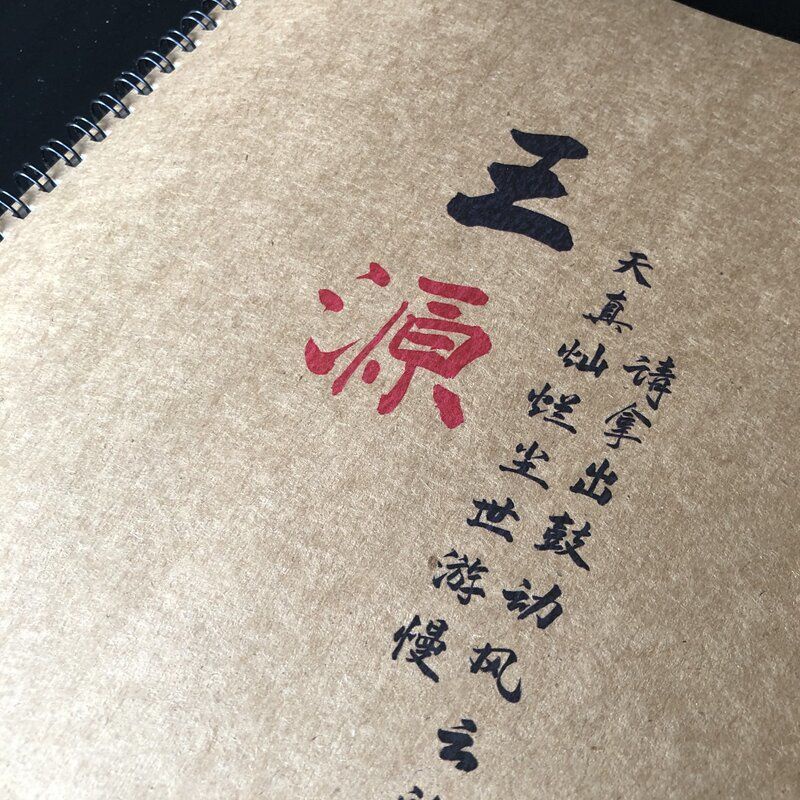 王源
请拿出鼓动风云
天真灿烂尘世游慢